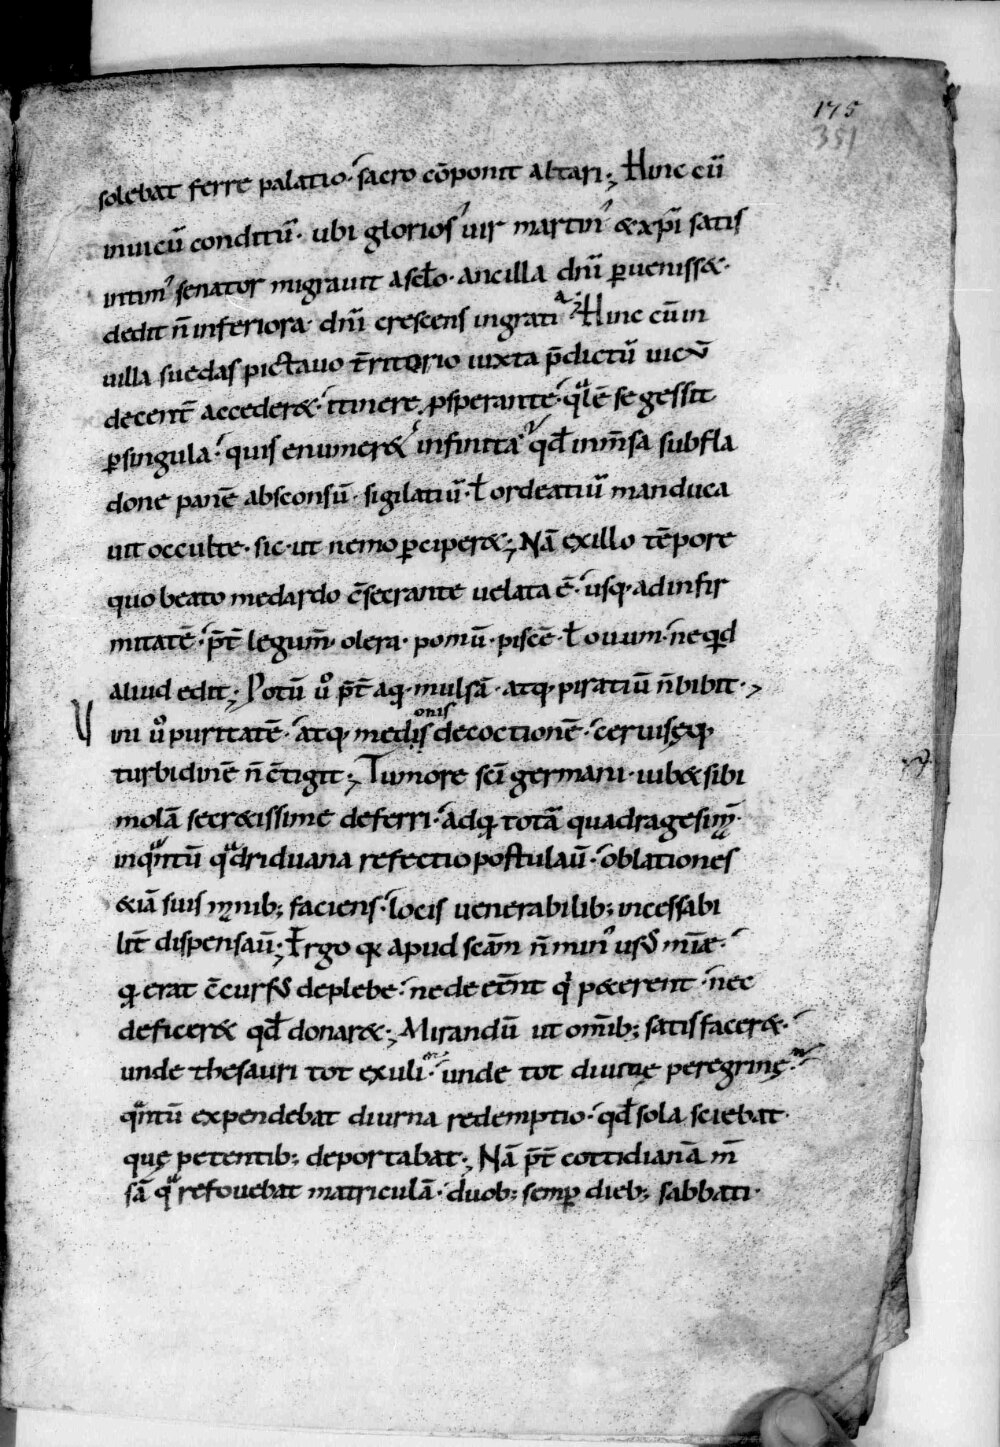 175
351
solebat ferre palatio· sacro cōponit altari·; Hinc cū
inuicū conditū· ubi glorios᾽ uir martin᾽ &xp̄i satis
intim᾽ senator migrauit asc̄lo· ancilla dn̄i ꝑueniss&·
dedit n̄ inferiora· dn̄i crescens in gratia·; Hinc cū in
uilla suedas pictauo t̄ritorio iuxta p̄dictū uicū
decent̄ acceder&· itinere ꝓsperante· qͣlē se gessit
ꝑsingula· quis enumer& infinita qd̄ inm̄sa subfla
done panē absconsū· sigilatiū· ł ordeatiū manduca
uit occulte· sic· ut nemo ꝑciper&·; Nā exillo tēpore
quo beato medardo c̄secrante uelata ē· usq· ad infir
mitatē· p̄t̄ legum̄· olera· pomū· piscē· ł ouum· neqd
aliud edit·; Potū ů p̄t̄ aq· mulsā· atq· piratiū n̄ bibit·;
Vini ů puritatē· atq· medisonis decoctionē· ceruisęq·
turbidinē n̄ c̄tigit·; Tumore sc̄i germani· iub& sibi
molā secr&issime deferri· adq· totā quadragesim̄·
inqͣntū qͣdriduana refectio postulaū· oblationes
&iā suis manib; faciens· locis uenerabilib; incessabi
lit̄ dispensaū·; Ergo qꝫ apud sc̄am n̄ min᾽ usꝰ mīæ·
q̇ erat c̄cursꝰ deplebe· nede eēnt qͥ p&erent· nec
deficer& qd̄ donar&·; Mirandū ut om̄ib; satisfacer&·
unde thesauri tot exuli· unde tot diuitię peregrinę·
qͣntū expendebat diurna redemptio· qd̄ sola sciebat·
quę petentib; deportabat·; Nā p̄t̄ cottidianā m̄
sā qͣ refouebat matriculā· duob; semꝑ dieb; sabbati·